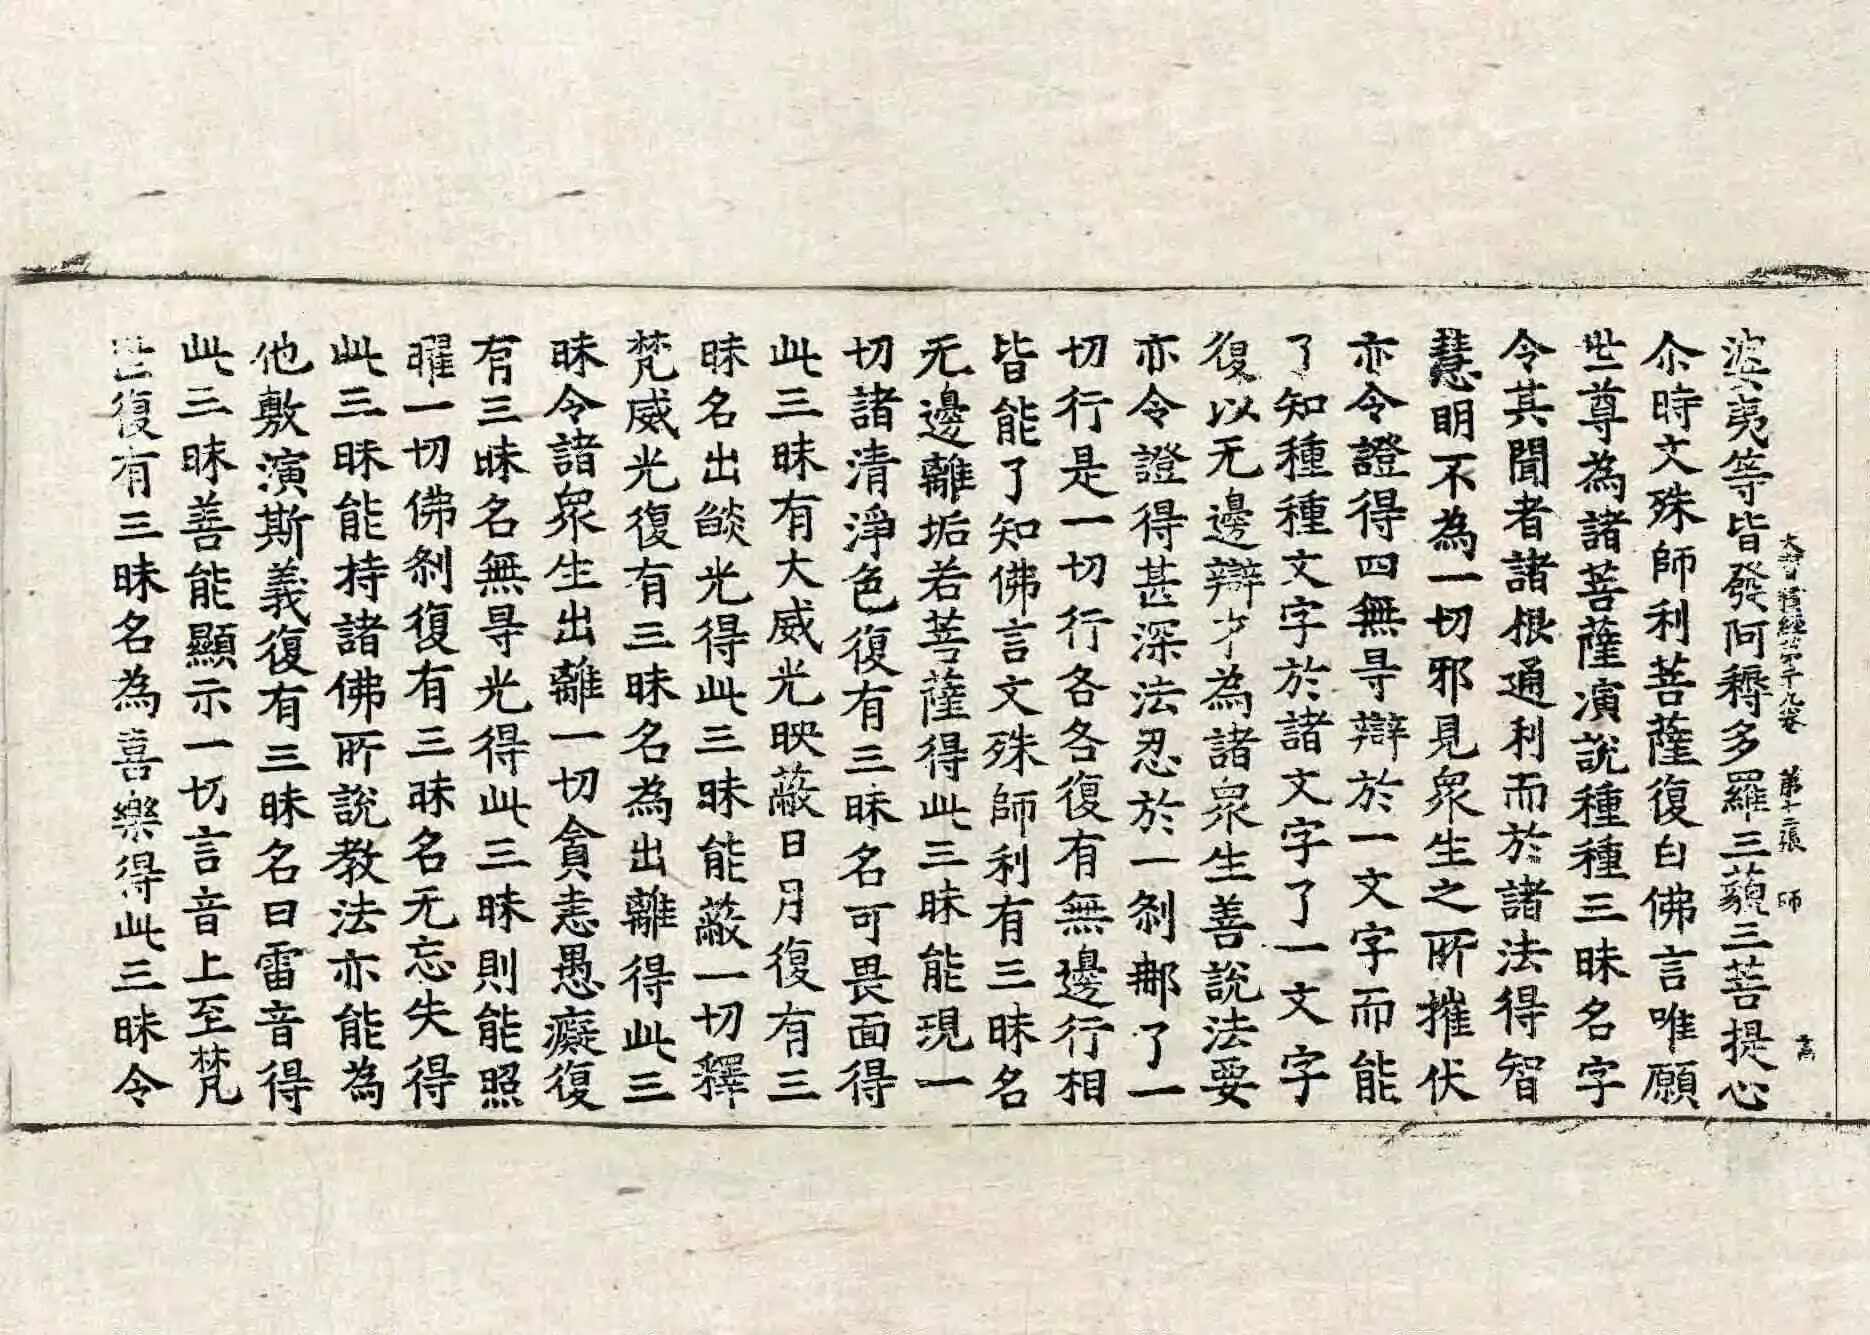 大寶積經第二十九卷　第十二張　師
波夷等皆發阿耨多羅三藐三菩提心
尒時文殊師利菩薩復白佛言唯願
世尊為諸菩薩演說種種三昧名字
令其聞者諸根通利而於諸法得智
慧明不為一切邪見衆生之所摧伏
亦令證得四無㝵辯於一文字而能
了知種種文字於諸文字了一文字
復以无邊辯才為諸衆生善說法要
亦令證得甚深法忍於一剎那了一
切行是一切行各各復有無邊行相
皆能了知佛言文殊師利有三昧名
无邊離垢若菩薩得此三昧能現一
切諸清淨色復有三昧名可畏面得
此三昧有大威光映蔽日月復有三
昧名出燄光得此三昧能蔽一切釋
梵威光復有三昧名為出離得此三
昧令諸衆生出離一切貪恚愚癡復
有三昧名無㝵光得此三昧則能照
曜一切佛剎復有三昧名无忘失得
此三昧能持諸佛所說教法亦能為
他敷演斯義復有三昧名曰雷音得
此三昧善能顯示一切言音上至梵
世復有三昧名為喜樂得此三昧令